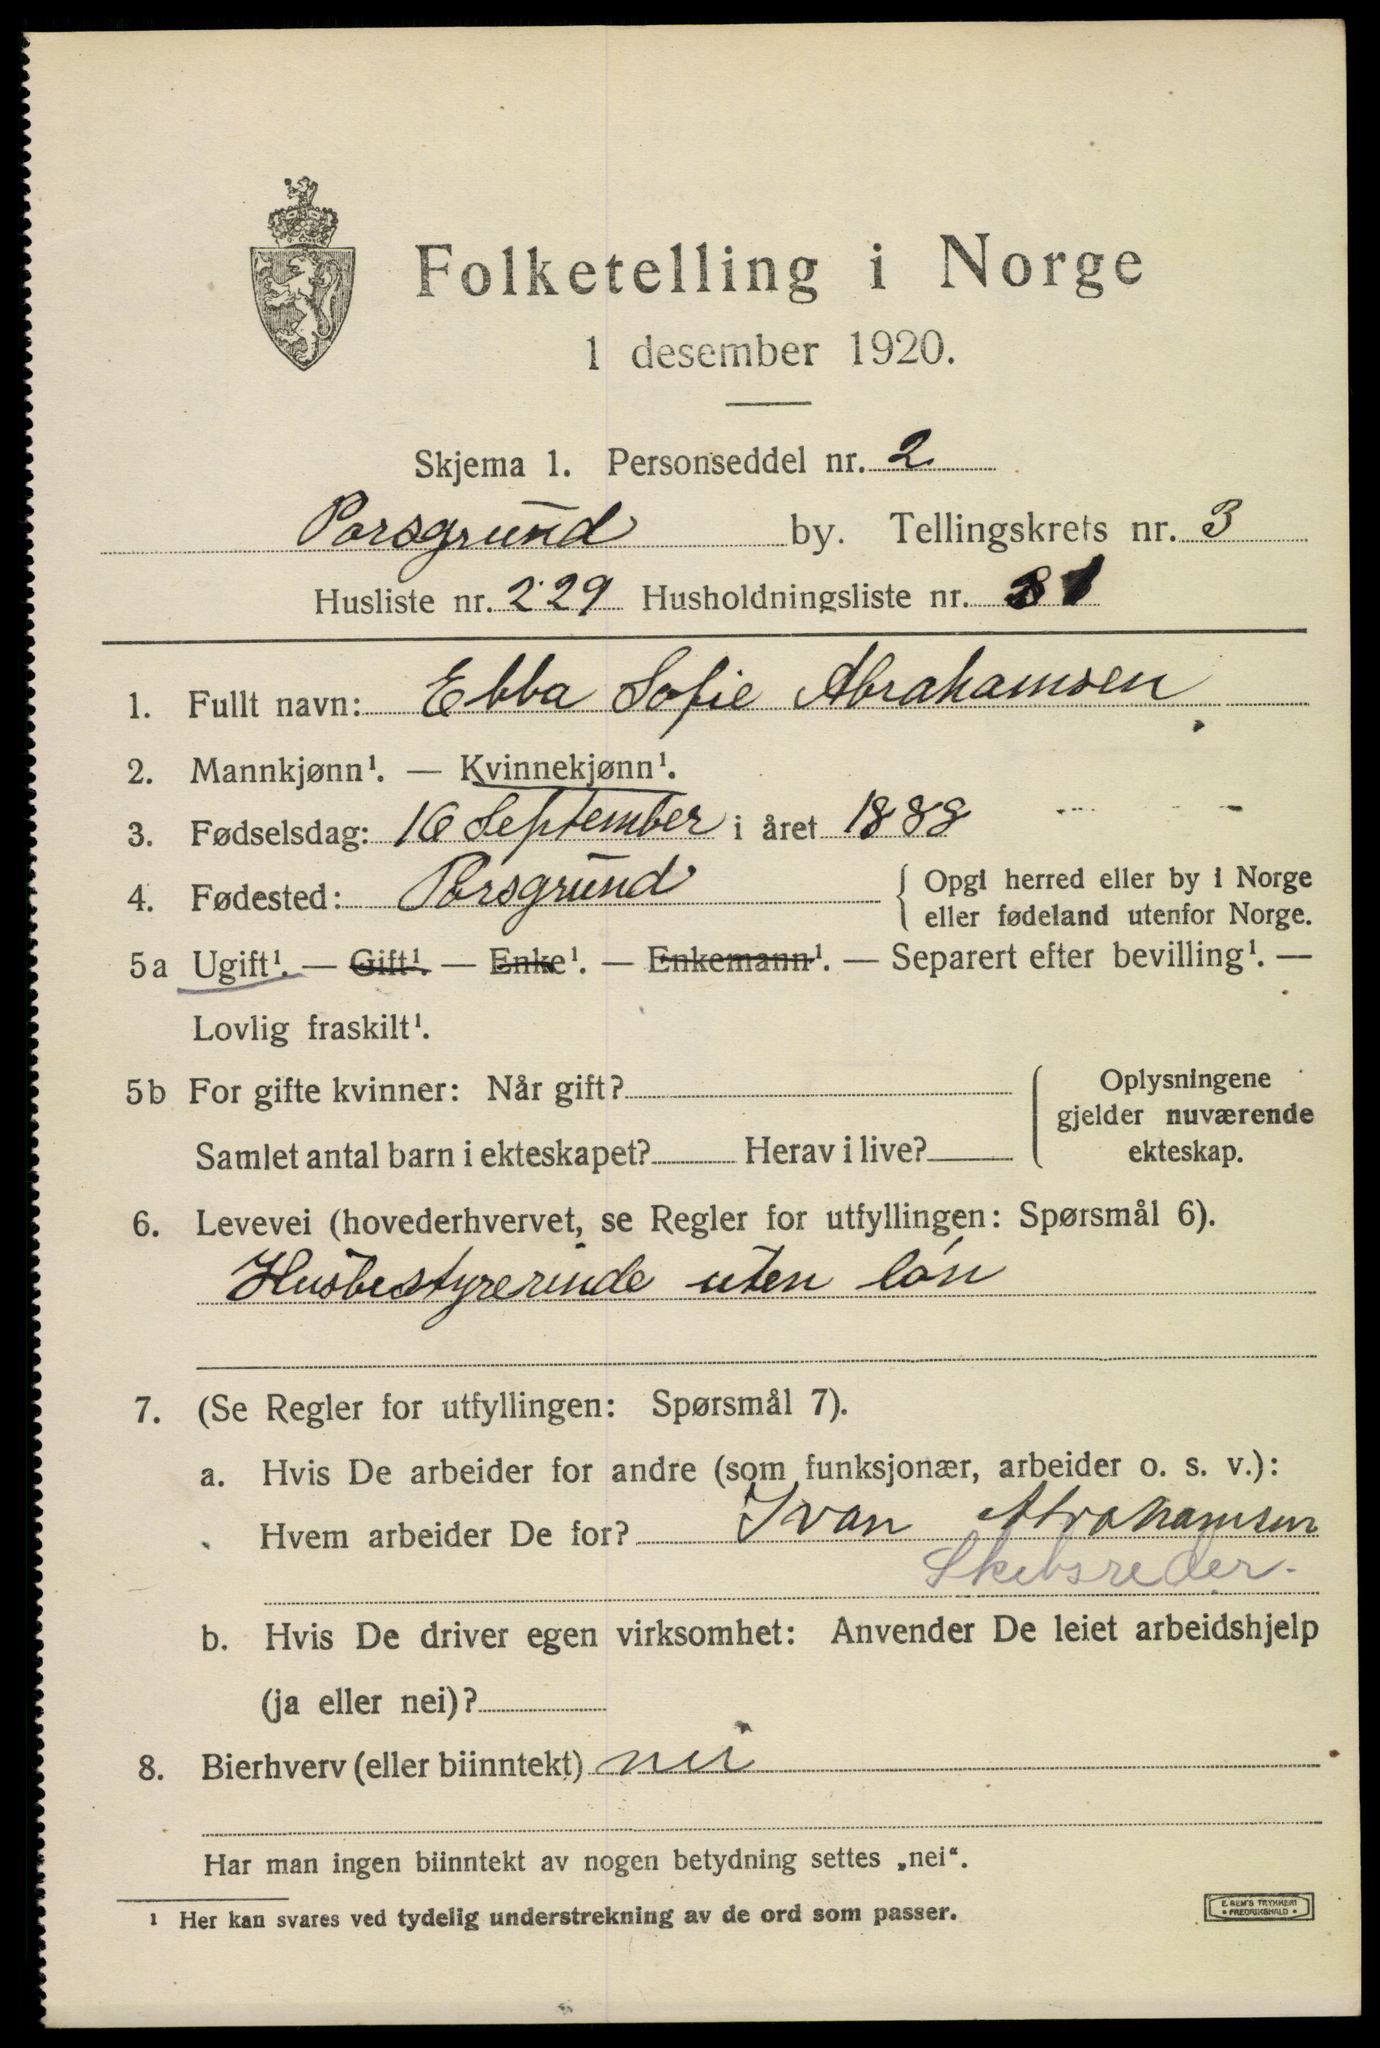 Folketelling i Norge
1 desember 1920.
Skjema 1. Personseddel nr. 2
Porsgrund by. Tellingskrets nr. 3
Husliste nr. 229 Husholdningsliste nr. 31
1. Fullt navn: Ebba Sofie Abrahamsen
2. Mannkjønn¹. — Kvinnekjønn¹.
3. Fødselsdag: 16 September i året 1888
4. Fødested: Porsgrund { Opgi herred eller by i Norge
eller fødeland utenfor Norge.
5a Ugift¹. — Gift¹. — Enke¹. — Enkemann¹. — Separert efter bevilling¹. —
Lovlig fraskilt¹.
5b For gifte kvinner: Når gift? { Oplysningene
gjelder nuværende
Samlet antal barn i ekteskapet? Herav i live? ekteskap.
6. Levevei (hovederhvervet, se Regler for utfyllingen: Spørsmål 6).
Husbestyrerinde uten løn
7. (Se Regler for utfyllingen: Spørsmål 7).
a. Hvis De arbeider for andre (som funksjonær, arbeider o. s. v.):
Hvem arbeider De for? Ivan Abrahamsen
Skibsreder.
b. Hvis De driver egen virksomhet: Anvender De leiet arbeidshjelp
(ja eller nei)?
8. Bierhverv (eller biinntekt) nei
Har man ingen biinntekt av nogen betydning settes „nei“.
¹ Her kan svares ved tydelig understrekning av de ord som passer.
E. SEM'S TRYKKERI
* FREDRIKSHALD *